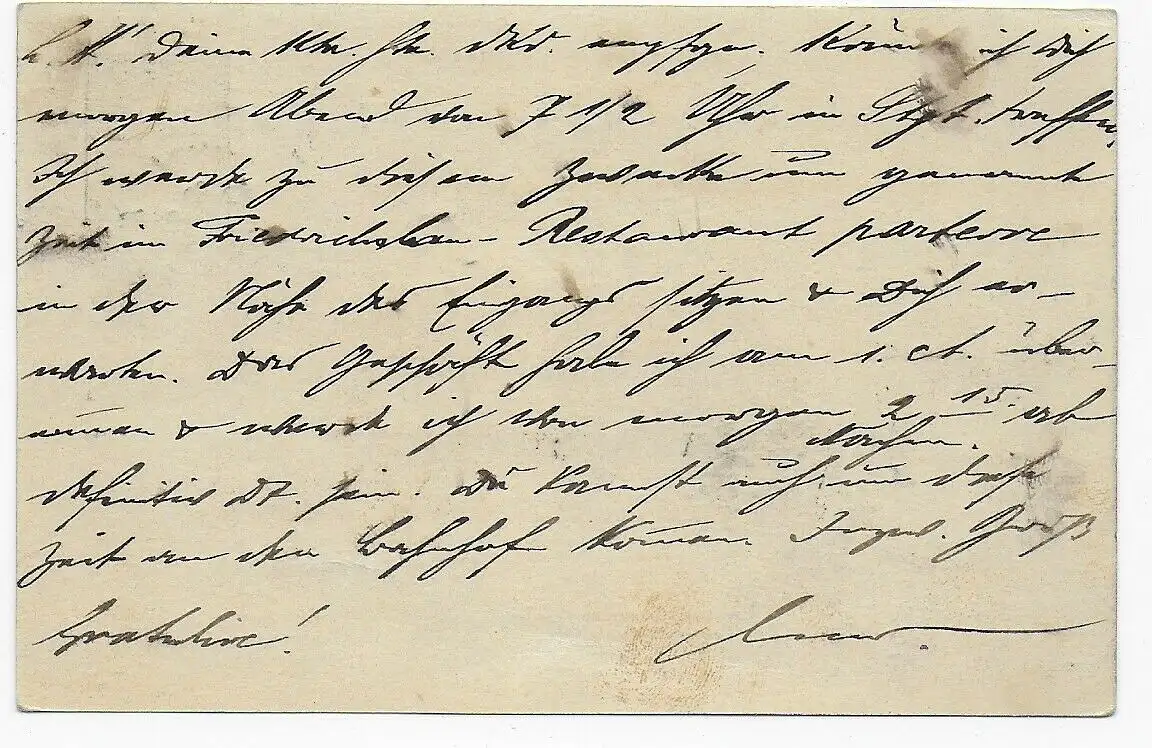 L. K! Deine Kte. habe empfgn. Könnte ich Dich
morgen Abend von 7 1/2 Uhr in Stgt. treffen
Ich werde zu diesem Zwecke um genannte
Zeit im Friedrichsbau-Restaurant parterre
in der Nähe des Eingangs sitzen & Dich er-
warten. Das Geschäft habe ich am 1. ct. über-
nommen & werde ich von morgen Nachm. 2 15. ab
definitiv dt. sein. Du kannst auch um diese
Zeit an den Bahnhof kommen. Gruß
Gratuliere!